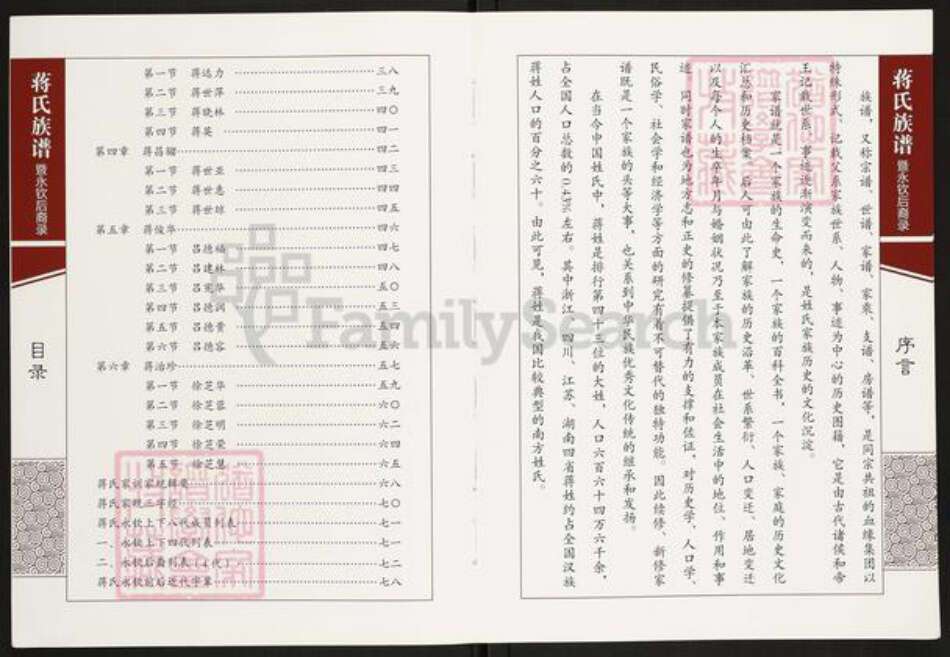 蒋氏族谱
暨永钦后裔录
序言
族谱，又称宗谱、世谱、家谱、家乘、支谱、房谱等，是同宗共祖的血缘集团以
特殊形式，记载父系家族世系、人物、事迹为中心的历史图籍，它是由古代诸侯和帝
王记载世系、事迹逐渐演变而来的，是姓氏家族历史的文化沉淀。
家谱就是一个家族的生命史，一个家族的百科全书，一个家族、家庭的历史文化
汇总和历史档案。后人可由此了解家族的历史沿革、世系繁衍、人口变迁、居地变迁
以及每个人的生卒年月与婚姻状况乃至于本家族成员在社会生活中的地位、作用和事
迹，同时家谱也为地方志和正史的修纂提供了有力的支撑和佐证，对历史学、人口学、
民俗学、社会学和经济学等方面的研究有着不可替代的独特功能。因此续修、新修家
谱既是一个家族的头等大事，也关系到中华民族优秀文化传统的继承和发扬。
在当今中国姓氏中，蒋姓是排行第四十三位的大姓，人口六百六十四万六千余，
占全国人口总数的0.43%左右。其中浙江、四川、江苏、湖南四省蒋姓约占全国汉族
蒋姓人口的百分之六十。由此可见，蒋姓是我国比较典型的南方姓氏。
第一节 蒋远力 三八
第二节 蒋世萍 三九
第三节 蒋晓林 四〇
第四节 蒋英 四一
第四章 蒋昌 四二
第一节 蒋世亚 四三
第二节 蒋世惠 四四
第三节 蒋世琼 四五
第五章 蒋俊华 四六
第一节 吕德福 四七
第二节 吕建林 四八
第三节 吕宪华 五〇
第四节 吕德润 五三
第五节 吕德贵 五四
第六节 吕德容 五六
第六章 蒋治珍 五七
第一节 徐芝华 五九
第二节 徐芝蓉 六〇
第三节 徐芝明 六二
第四节 徐芝荣 六四
第五节 徐芝慧 六五
蒋氏家训家规辑要 六八
蒋氏家规三字经 七〇
蒋氏永钦上下八代成员列表 七一
一、永钦上下四代列表 七一
二、永钦后裔列表（4代） 七二
蒋氏永钦前后近代字辈 七八
目录
蒋氏族谱
暨永钦后裔录
FamilySearch